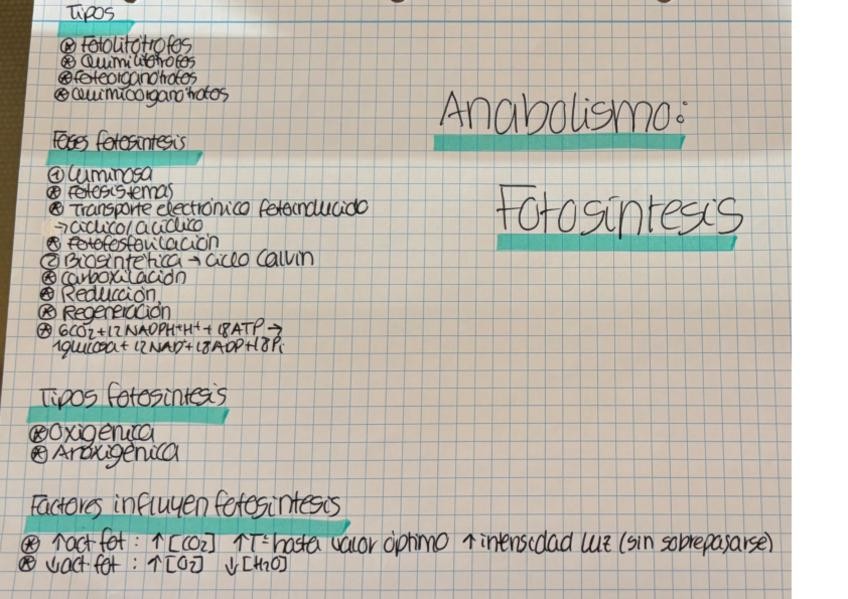 Tipos
Fotolitótrofos
Quimilitótrofos
Fotoorganótrofos
Quimioorganótrofos
Anabolismo:
Fotosíntesis
Fases fotosíntesis
① Luminosa
Fotosistemas
Transporte electrónico fotoinducido
→ cíclico/acíclico
Fotofosforilación
② Biosintética → ciclo Calvin
Carboxilación
Reducción
Regeneración
6CO2+12NADPH+H++18ATP →
1glucosa+12NAD+18ADP+18Pi
Tipos fotosíntesis
Oxigénica
Anoxigénica
Factores influyen fotosíntesis
↑act fot : ↑[CO2] ↑Tª hasta valor óptimo ↑intensidad luz (sin sobrepasarse)
↓act fot : ↑[O2] ↓[H2O]